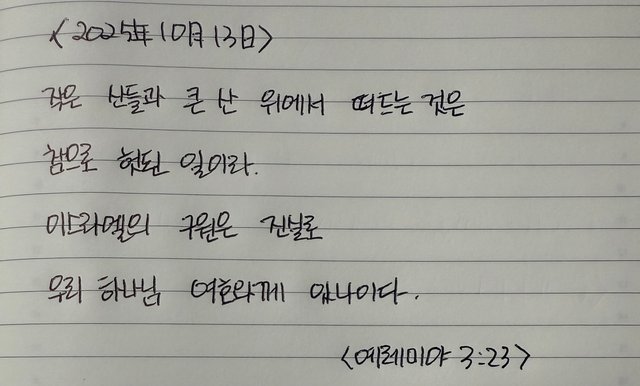 <2025年 10月 13日>
작은 산들과 큰 산 위에서 떠드는 것은
참으로 헛된 일이라.
이스라엘의 구원은 진실로
우리 하나님 여호와께 있나이다.
<예레미야 3:23>